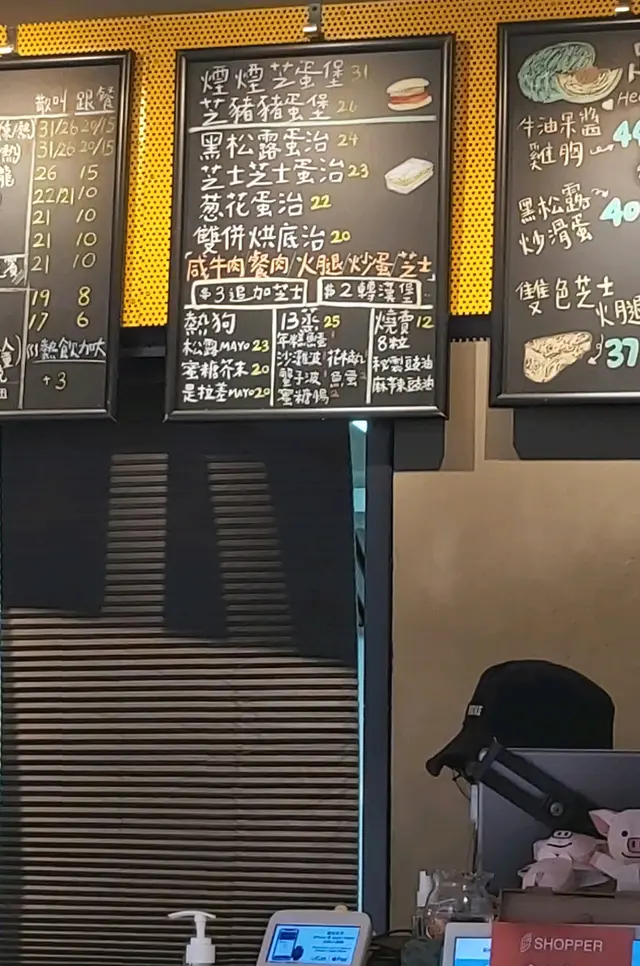 散叫 跟餐
31/26 20/15
31/26 20/15
26 15
22/21 10
21 10
21 10
21 10
19 8
17 6
熱飲加大
+3
煙煙芝蛋堡 31
芝豬豬蛋堡 26
黑松露蛋治 24
芝士芝士蛋治 23
葱花蛋治 22
雙併烘底治 20
咸牛肉/餐肉/火腿/炒蛋/芝士
$3追加芝士
$2轉漢堡
熱狗
松露MAYO 23
蜜糖芥末 20
是拉差MAYO 20
25
沙灘波
蟹子波 魚蛋
蜜糖腸
燒賣 12
8粒
秘製豉油
麻辣豉油
牛油果醬
雞胸
黑松露
炒滑蛋
40
雙色芝士
火腿
37
SHOPPER